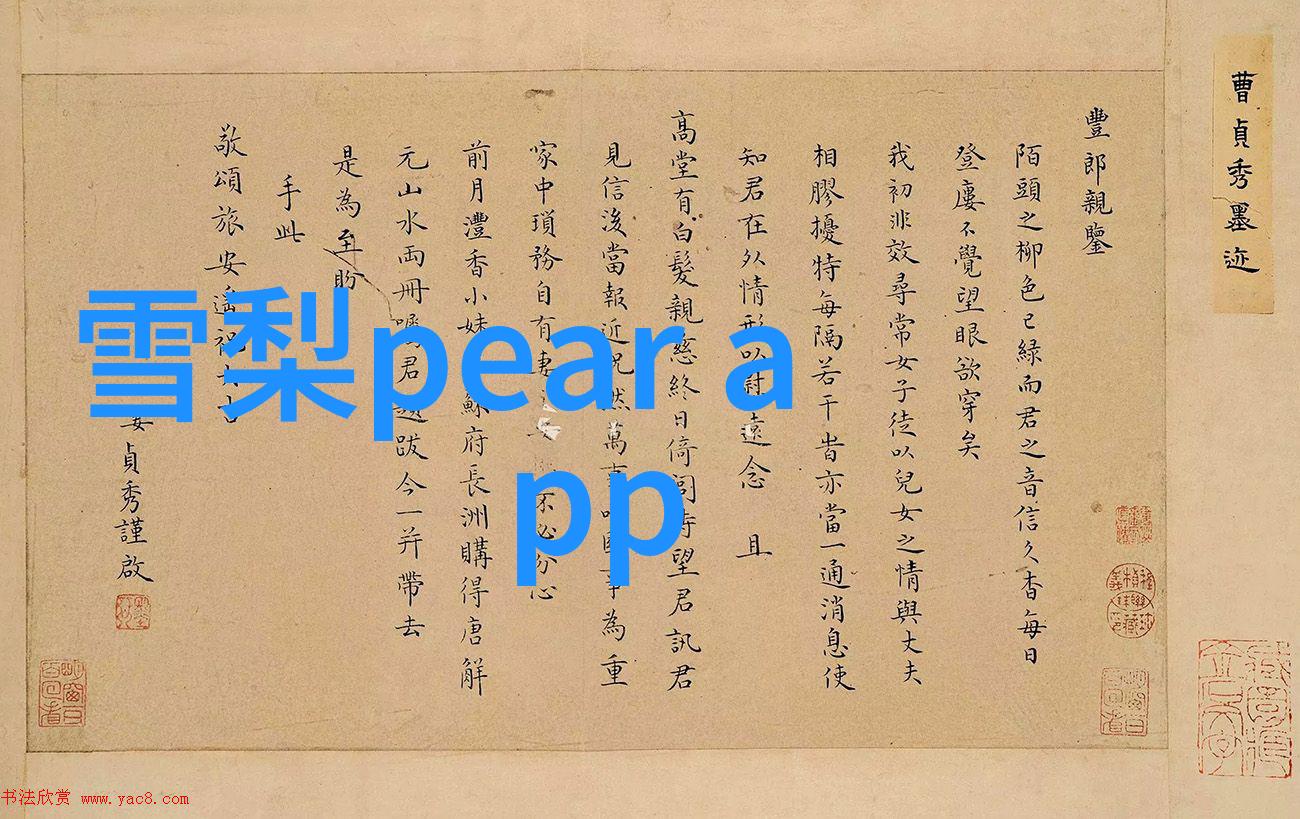 曹貞秀墨迹
豐郎親鑒
陌頭之柳色已綠而君之音信久杳每日
登廔不覺望眼欲穿矣
我初非效尋常女子徒以兒女之情與丈夫
相膠擾特每隔若干旹亦當一通消息使
知君在外情形以慰遠念 且
高堂有白髮親慈終日倚閭待望君訊君
見信後當報近況然萬事國事為重
家中瑣務自有妻不必分心
前月灃香小妹蘇府長洲購得唐解
元山水兩冊囑君題跋今一并帶去
是為至盼
手此
敬頌旅安遙祝大吉
妾貞秀謹啟
雪梨pear a
pp
书法欣赏 www.yac8.com